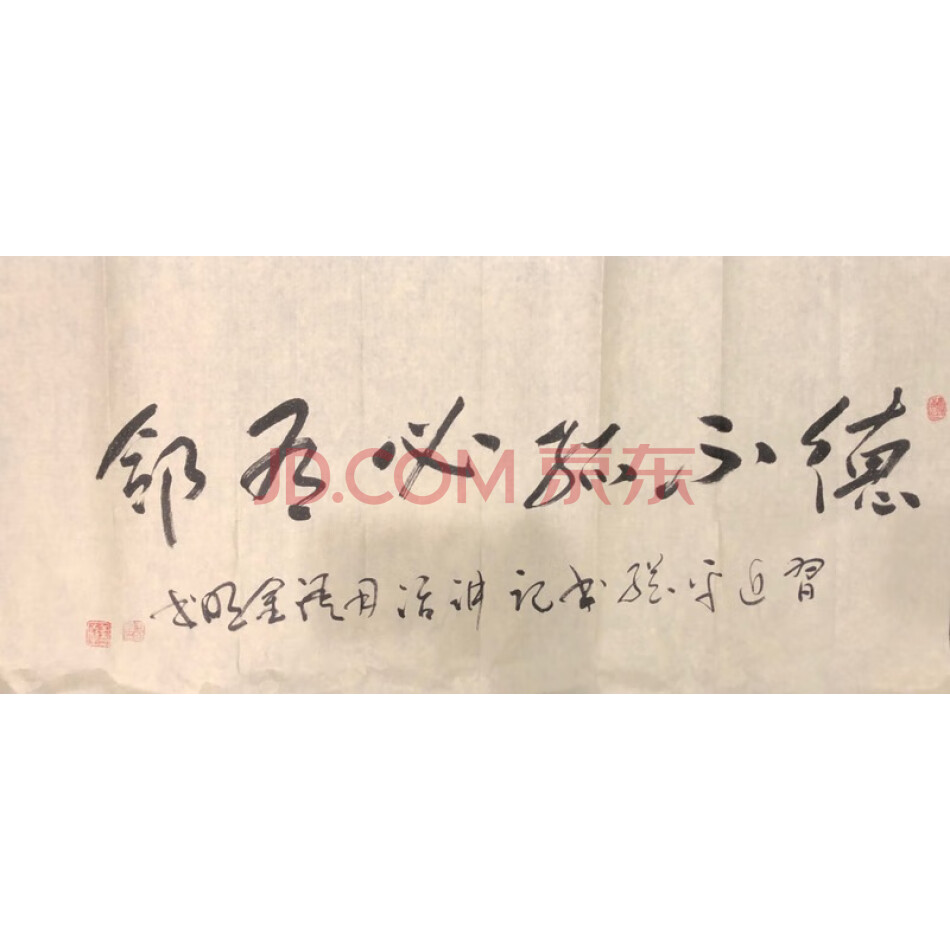 德不孤必有邻
习近平总书记讲话用语金明书
JD.COM 京东